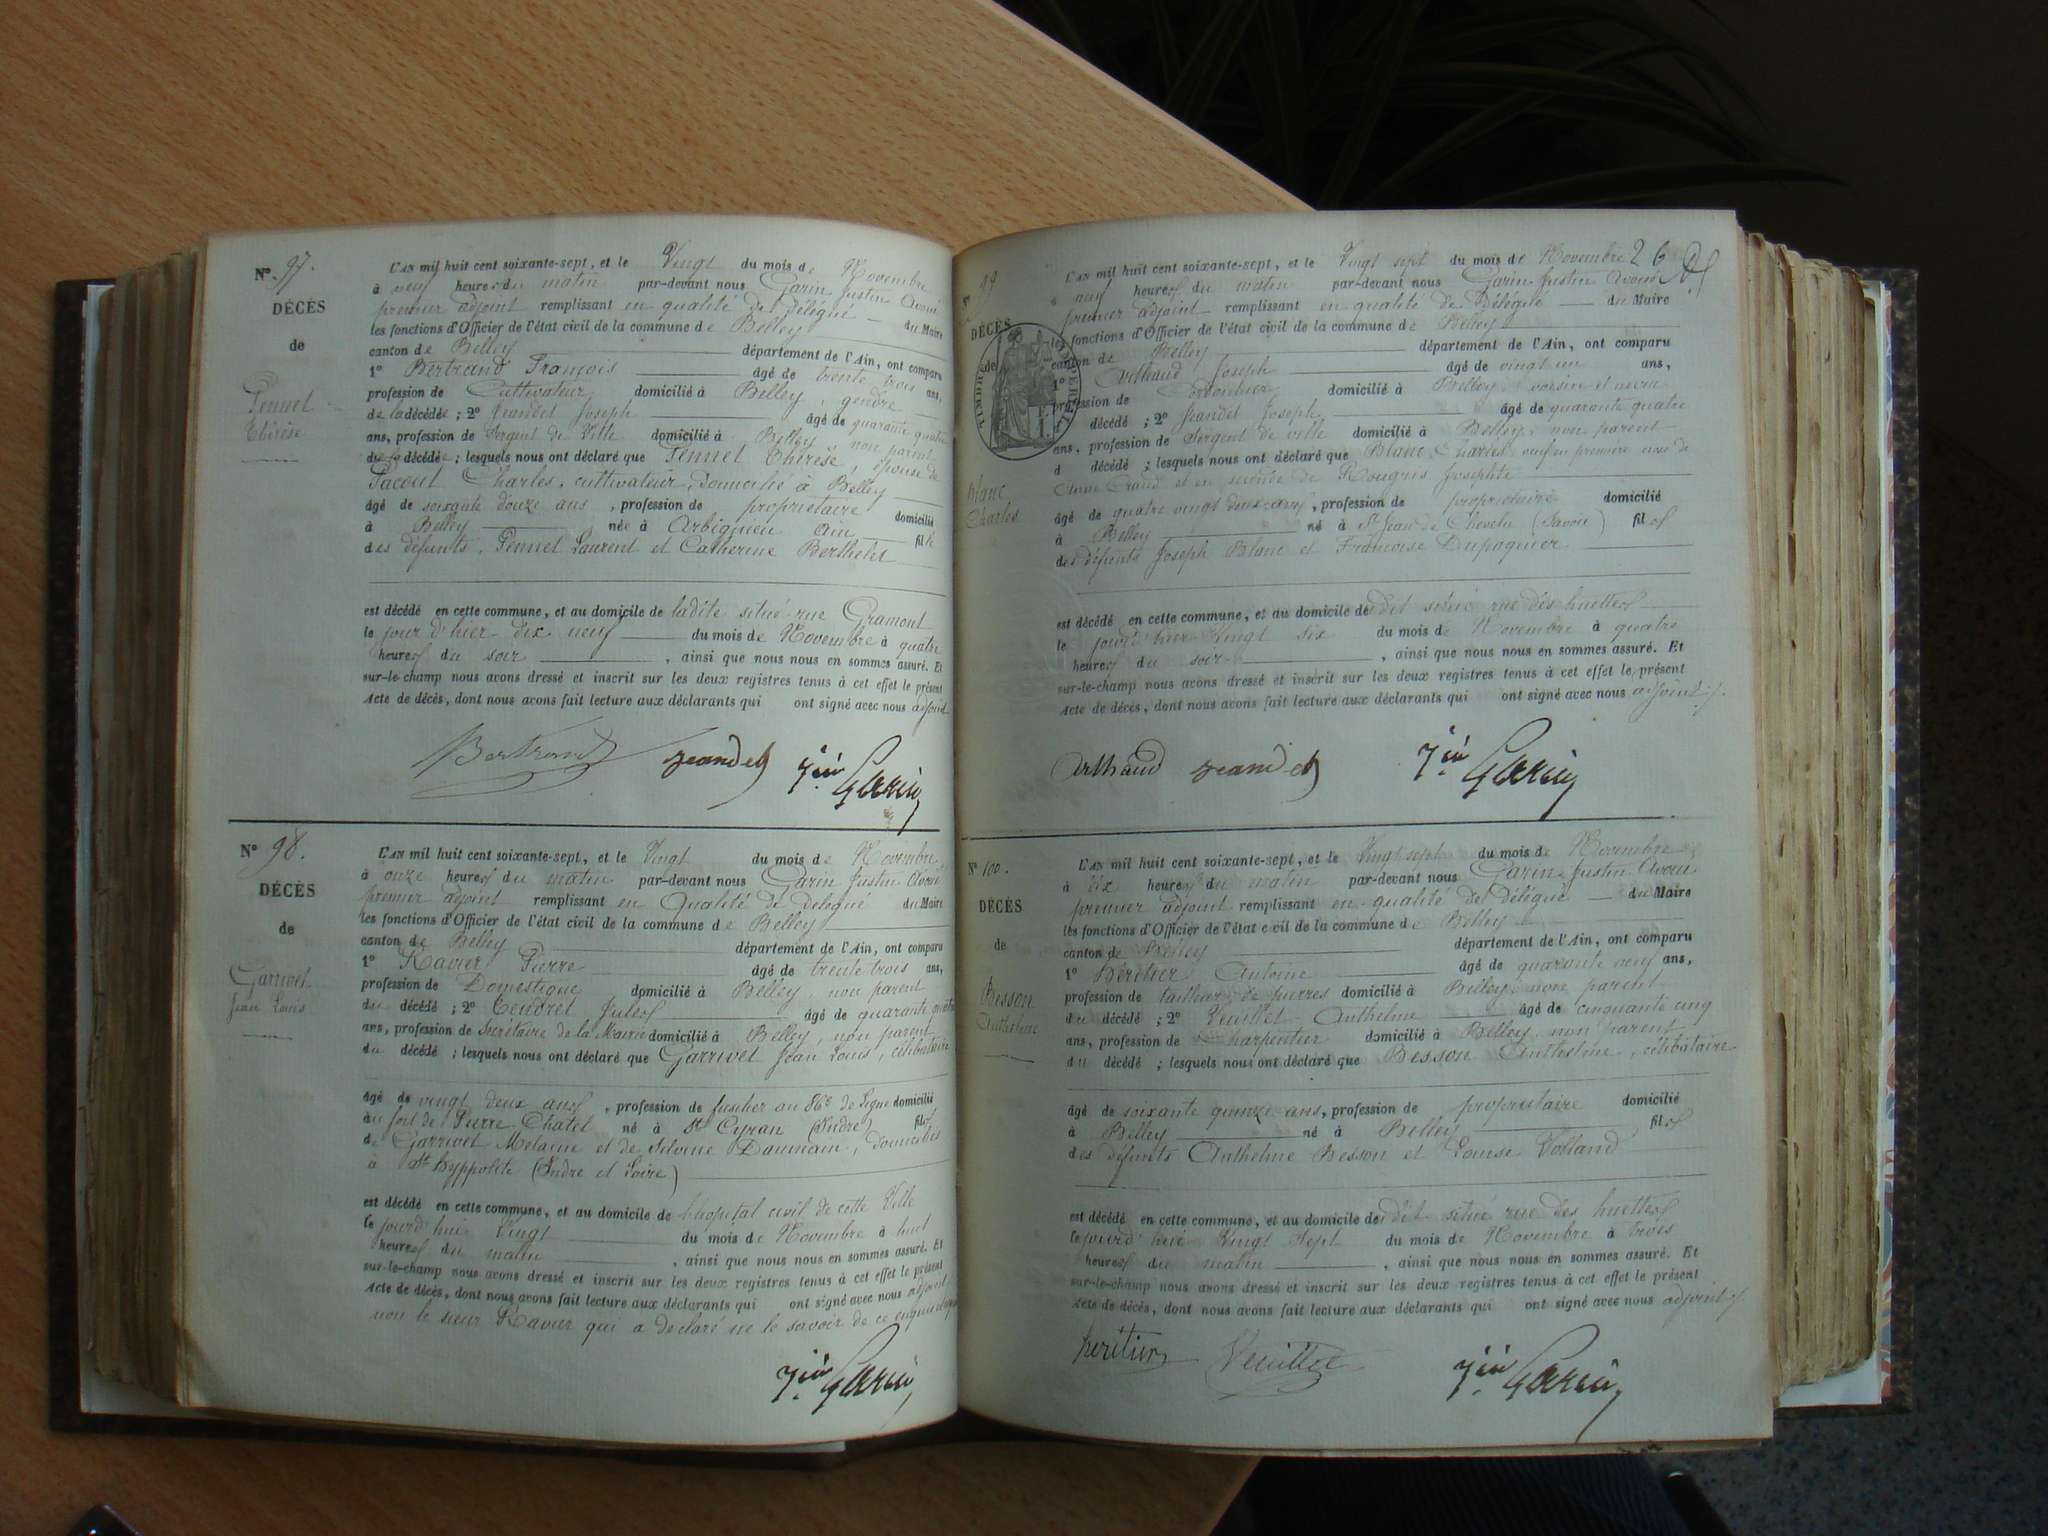 N° 97.
DÉCÈS
de
Pennet
Thérèse
L'AN mil huit cent soixante-sept, et le Vingt du mois de Novembre
à neuf heures du matin par-devant nous Garin Justin Avoué
premier adjoint remplissant en qualité de délégué du Maire
les fonctions d'Officier de l'état civil de la commune de Belley
canton de Belley département de l'Ain, ont comparu
1° Bertrand François âgé de trente trois ans,
profession de Cultivateur domicilié à Belley, gendre
de la décédée ; 2° Jeandet Joseph âgé de quarante quatre
ans, profession de Sergent de Ville domicilié à Belley, non parent
de la décédée ; lesquels nous ont déclaré que Pennet Thérèse, épouse de
Pacout Charles, cultivateur, domicilié à Belley
âgé de soixante douze ans, profession de propriétaire domicilié
à Belley née à Arbignieu Ain fille
des défunts, Pennet Laurent et Catherine Berthelet
est décédé en cette commune, et au domicile de ladite situé rue Gramont
le jour d'hier dix neuf du mois de Novembre à quatre
heures du soir, ainsi que nous nous en sommes assuré. Et
sur-le-champ nous avons dressé et inscrit sur les deux registres tenus à cet effet le présent
Acte de décès, dont nous avons fait lecture aux déclarants qui ont signé avec nous adjoint
Bertrand Jeandet Garin
N° 98.
DÉCÈS
de
Garrivet
Jean Louis
L'AN mil huit cent soixante-sept, et le Vingt du mois de Novembre
à onze heures du matin par-devant nous Garin Justin Avoué
premier adjoint remplissant en Qualité de délégué du Maire
les fonctions d'Officier de l'état civil de la commune de Belley
canton de Belley département de l'Ain, ont comparu
1° Ravier Pierre âgé de trente trois ans,
profession de Domestique domicilié à Belley, non parent
du décédé ; 2° Tendret Jules âgé de quarante quatre
ans, profession de Secrétaire de la Mairie domicilié à Belley, non parent
du décédé ; lesquels nous ont déclaré que Garrivet Jean Louis, célibataire
âgé de vingt deux ans, profession de fusilier au 86e de Ligne domicilié
au fort de Pierre Chatel né à St Cyran (Indre) fils
de Garrivet Melaine et de Silvine Daumain, domiciliés
à St hyppolite (Indre et Loire)
est décédé en cette commune, et au domicile de l'hopital civil de cette Ville
le jourd'hui Vingt du mois de Novembre à huit
heures du matin, ainsi que nous nous en sommes assuré. Et
sur-le-champ nous avons dressé et inscrit sur les deux registres tenus à cet effet le présent
Acte de décès, dont nous avons fait lecture aux déclarants qui ont signé avec nous adjoint
non le sieur Ravier qui a déclaré ne le savoir de ce enquis
Garin
26
99
DÉCÈS
de
TIMBRE IMPÉRIAL
Blanc
Charles
L'AN mil huit cent soixante-sept, et le Vingt sept du mois de Novembre
à neuf heures du matin par-devant nous Garin Justin Avoué
premier adjoint remplissant en qualité de Délégué du Maire
les fonctions d'Officier de l'état civil de la commune de Belley
canton de Belley département de l'Ain, ont comparu
1° Arthaud Joseph âgé de vingt un ans,
profession de Cordonnier domicilié à Belley, voisin et
décédé ; 2° Jeandet Joseph âgé de quarante quatre
ans, profession de Sergent de ville domicilié à Belley, non parent
d décédé ; lesquels nous ont déclaré que Blanc Charles, veuf en première de
et en seconde de Josephte
âgé de quatre vingt deux ans, profession de propriétaire domicilié
à Belley né à St Jean de Chevelu (Savoie) fils
des défunts Joseph Blanc et Françoise Dupaquier
est décédé en cette commune, et au domicile dudit situé rue des huettes
le jourd'hier Vingt six du mois de Novembre à quatre
heures du soir, ainsi que nous nous en sommes assuré. Et
sur-le-champ nous avons dressé et inscrit sur les deux registres tenus à cet effet le présent
Acte de décès, dont nous avons fait lecture aux déclarants qui ont signé avec nous adjoint
Arthaud Jeandet Garin
N° 100.
DÉCÈS
de
Besson
Anthelme
L'AN mil huit cent soixante-sept, et le Vingt sept du mois de Novembre
à dix heures du matin par-devant nous Garin Justin Avoué
premier adjoint remplissant en qualité de délégué du Maire
les fonctions d'Officier de l'état civil de la commune de Belley
canton de Belley département de l'Ain, ont comparu
1° Héritier Antoine âgé de quarante neuf ans,
profession de tailleur de pierres domicilié à Belley, non parent
du décédé ; 2° Veuillet Anthelme âgé de cinquante cinq
ans, profession de charpentier domicilié à Belley, non parent
du décédé ; lesquels nous ont déclaré que Besson Anthelme, célibataire
âgé de soixante quinze ans, profession de propriétaire domicilié
à Belley né à Belley, fils
des défunts Anthelme Besson et Louise Volland
est décédé en cette commune, et au domicile dudit situé rue des huettes
le jourd'hui Vingt Sept du mois de Novembre à trois
heures du matin, ainsi que nous nous en sommes assuré. Et
sur-le-champ nous avons dressé et inscrit sur les deux registres tenus à cet effet le présent
Acte de décès, dont nous avons fait lecture aux déclarants qui ont signé avec nous adjoint
héritier Veuillet Garin